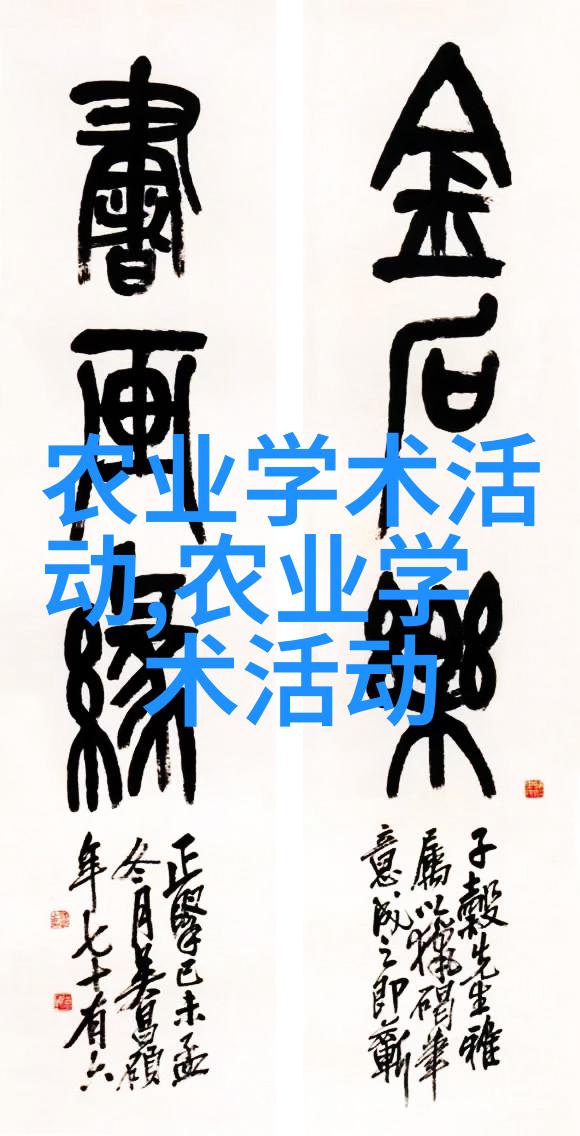 金石樂
書畫緣
子穀先生雅
屬以獵碣筆
意成之即蘄
正擧己未孟
冬月吳昌碩
年七十有六
农业学术活
动,农业学
术活动